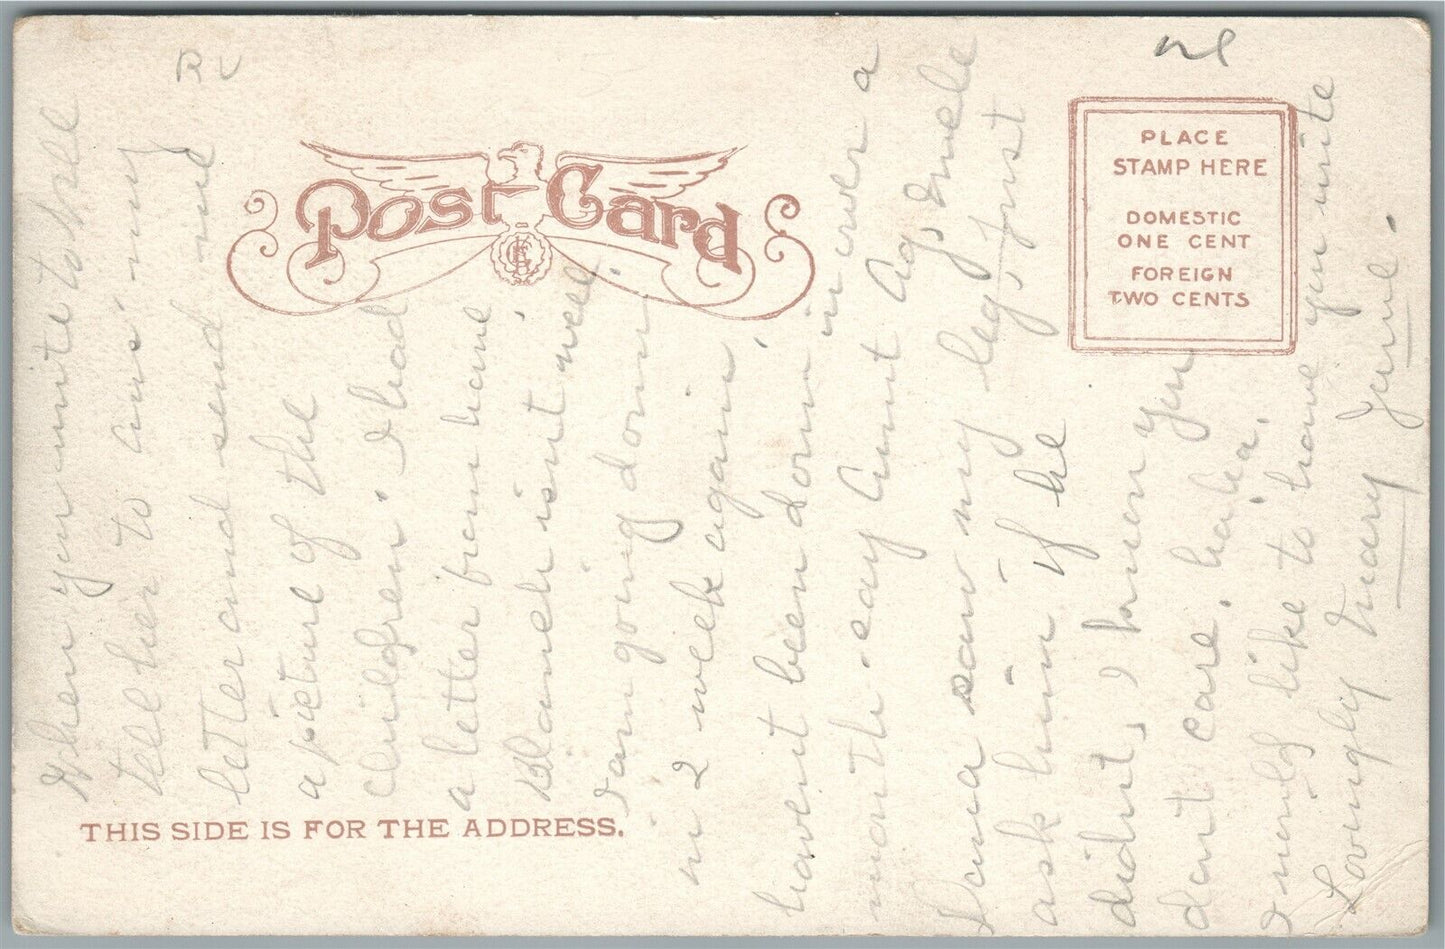 Post Card
PLACE
STAMP HERE
DOMESTIC
ONE CENT
FOREIGN
TWO CENTS
THIS SIDE IS FOR THE ADDRESS.
When you write to
tell her to ans. my
letter and send me
a picture of the
children. I had
a letter from home
Blanch isnt well.
I am going down
in 2 week again,
havent been down in over a
month. say Aunt Ag, Uncle
Dana saw my leg, just
ask him if he
didnt, I know you
dont care, haha.
I surly like to have you write
Lovingly Mary Jane.